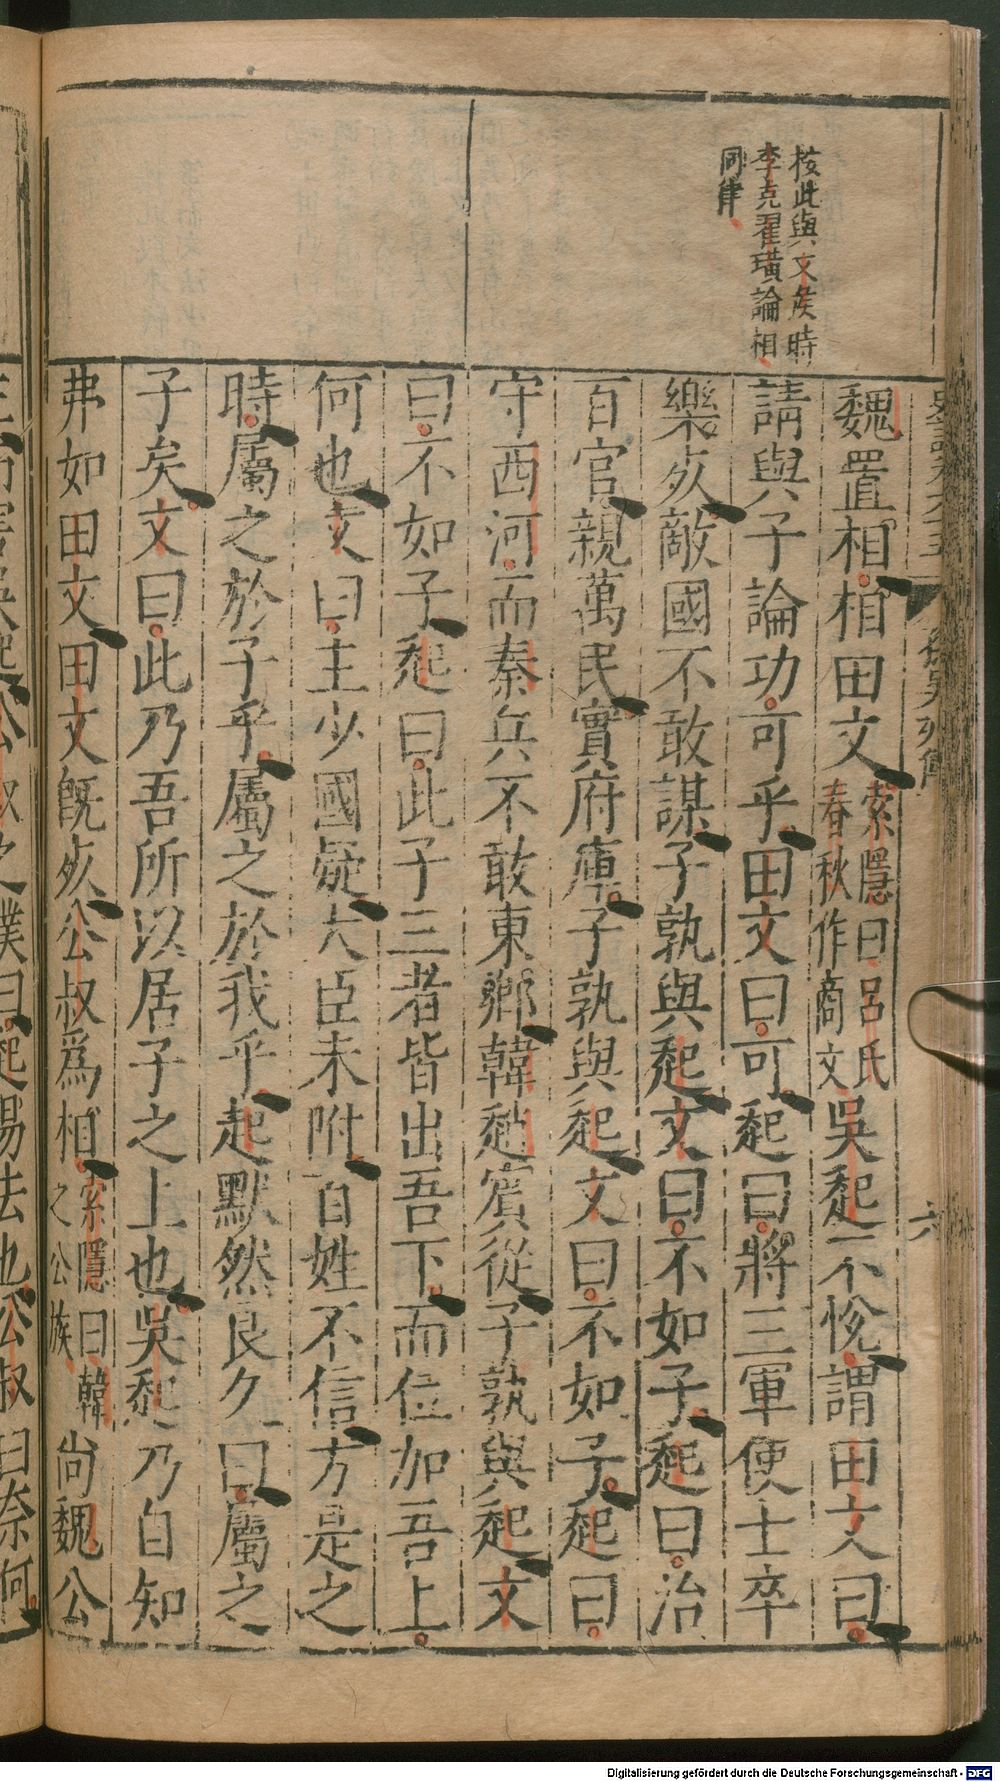 按此與文矦時
李克翟璜論相
同律
魏置相相田文索隱曰呂氏春秋作商文吳起不悅謂田文曰
請與子論功可乎田文曰可起曰將三軍使士卒
樂死敵國不敢謀子孰與起文曰不如子起曰治
百官親萬民實府庫子孰與起文曰不如子起曰
守西河而秦兵不敢東鄉韓趙賓從子孰與起文
曰不如子起曰此子三者皆出吾下而位加吾上
何也文曰主少國疑大臣未附百姓不信方是之
時屬之於子乎屬之於我乎起默然良久曰屬之
子矣文曰此乃吾所以居子之上也吳起乃自知
弗如田文田文旣死公叔爲相索隱曰韓之公族尚魏公
孫吳列傳
六
公叔之僕曰起易去也公叔曰奈何
Digitalisierung gefördert durch die Deutsche Forschungsgemeinschaft - DFG